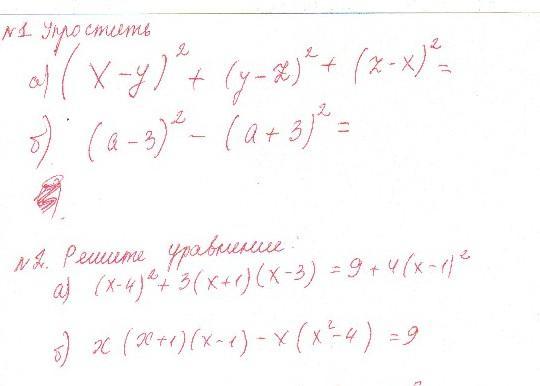 №1 Упростить
а) (x-y)² + (y-z)² + (z-x)² =
б) (a-3)² - (a+3)² =
№2. Решите уравнение:
а) (x-4)² + 3(x+1)(x-3) = 9 + 4(x-1)²
б) x(x+1)(x-1) - x(x²-4) = 9